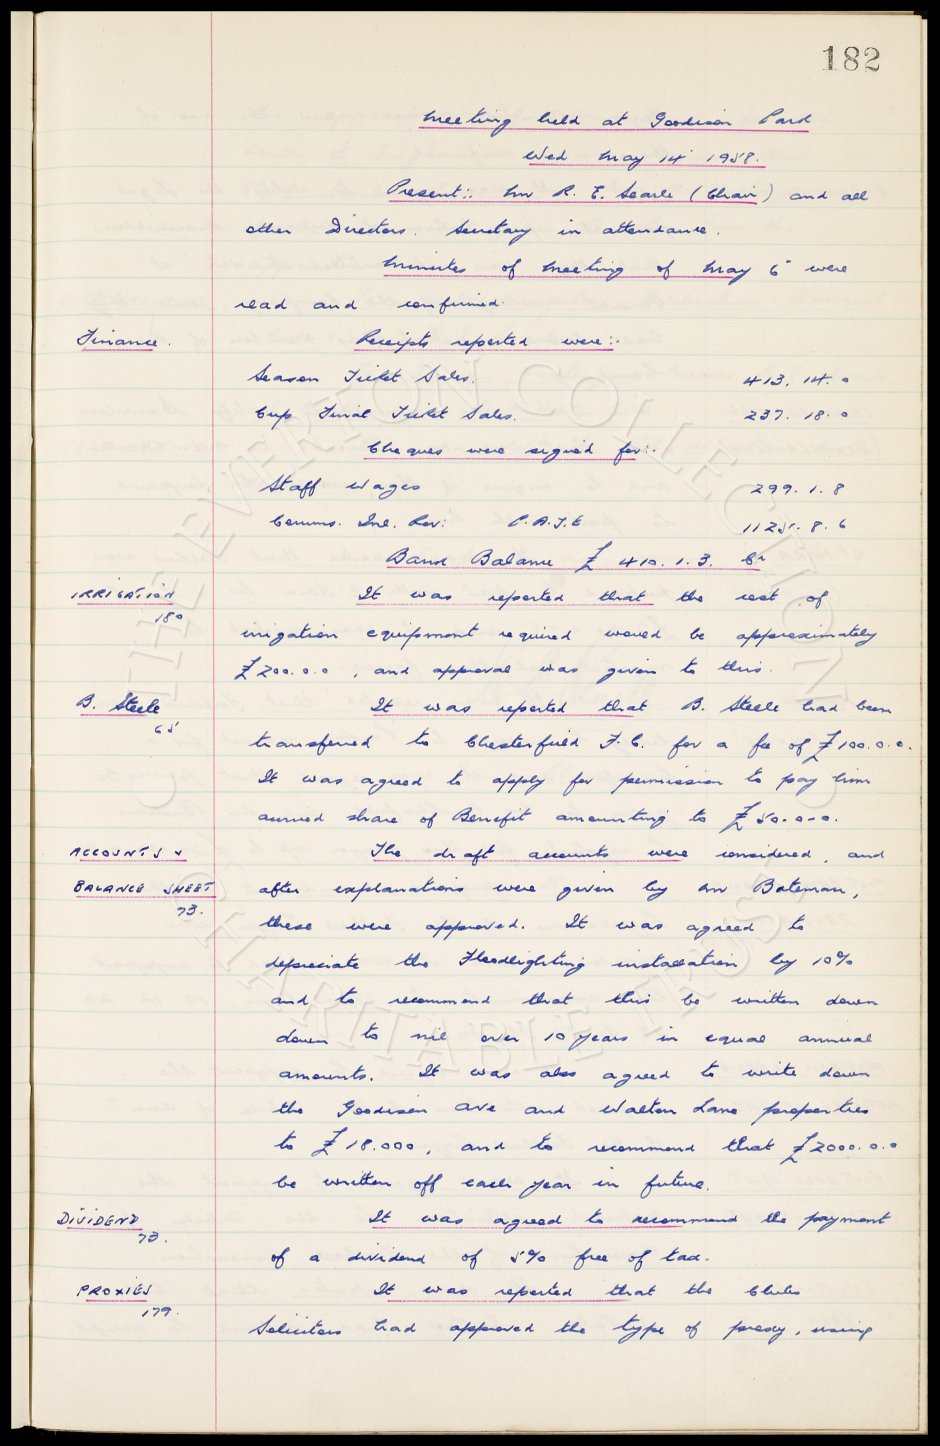 182
Meeting held at Goodison Park
Wed May 14" 1958.
Present:. Mr R. E. Searle (Chair) and all
other Directors. Secretary in attendance.
Minutes of Meeting of May 6" were
read and confirmed.
Finance. Receipts reported were:.
Season Ticket Sales. 413. 14. 0
Cup Final Ticket Sales. 237. 18. 0
Cheques were signed for:.
Staff Wages 299. 1. 8
Comms. Inl. Rev: P.A.Y.E 1125. 8. 6
Bank Balance £ 410. 1. 3. Cr
IRRIGATION It was reported that the cost of
180
irrigation equipment required would be approximately
£200.0.0, and approval was given to this.
B. Steele It was reported that B. Steele had been
65
transferred to Chesterfield F.C. for a fee of £100.0.0.
It was agreed to apply for permission to pay him
accrued share of Benefit amounting to £50.0.0.
ACCOUNTS & The draft accounts were considered, and
BALANCE SHEET after explanations were given by Mr Bateman,
73.
these were approved. It was agreed to
depreciate the Floodlighting installation by 10%
and to recommend that this be written down
down to nil over 10 years in equal annual
amounts. It was also agreed to write down
the Goodison Ave and Walton Lane properties
to £18.000, and to recommend that £2000.0.0
be written off each year in future.
DIVIDEND It was agreed to recommend the payment
73.
of a dividend of 5% free of tax.
PROXIES It was reported that the Clubs
179.
Solicitors had approved the type of proxy, using
THE EVERTON COLLECTION
CHARITABLE TRUST